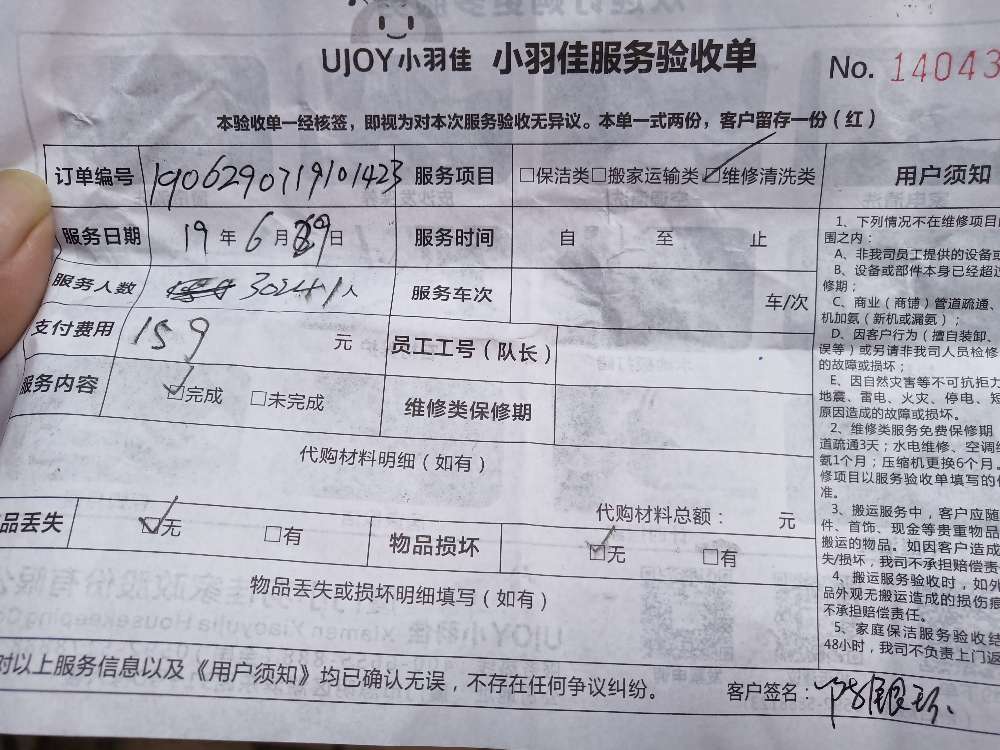 UJOY小羽佳 小羽佳服务验收单 No. 14043
本验收单一经核签，即视为对本次服务验收无异议。本单一式两份，客户留存一份（红）
订单编号 190629071910142​3 服务项目 □保洁类□搬家运输类☑维修清洗类
服务日期 19年6月29日 服务时间 自 至 止
服务人数 30241人 服务车次 车/次
支付费用 159 元 员工工号（队长）
服务内容 ☑完成 □未完成 维修类保修期
代购材料明细（如有）
代购材料总额： 元
品丢失 ☑无 □有 物品损坏 ☑无 □有
物品丢失或损坏明细填写（如有）
对以上服务信息以及《用户须知》均已确认无误，不存在任何争议纠纷。
客户签名：
用户须知
1、下列情况不在维修项目
围之内：
A、非我司员工提供的设备或
B、设备或部件本身已经超过
修期；
C、商业（商铺）管道疏通、
机加氨（新机或漏氨）；
D、因客户行为（擅自装卸、
误等）或另请非我司人员检修
的故障或损坏；
E、因自然灾害等不可抗拒力
地震、雷电、火灾、停电、短
原因造成的故障或损坏。
2、维修类服务免费保修期
道疏通3天；水电维修、空调
氨1个月；压缩机更换6个月。
修项目以服务验收单填写的
准。
3、搬运服务中，客户应随
件、首饰、现金等贵重物品
搬运的物品。如因客户造成
失/损坏，我司不承担赔偿责
4、搬运服务验收时，如外
品外观无搬运造成的损伤痕
不承担赔偿责任。
5、家庭保洁服务验收结
48小时，我司不负责上门返